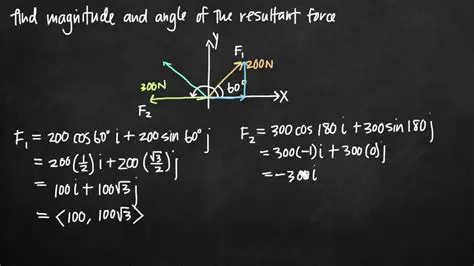 find magnitude and angle of the resultant force
y
F₁
200N
300N
60°
x
F₂
F₁ = 200 cos 60° i + 200 sin 60° j
= 200(1/2) i + 200(√3/2) j
= 100 i + 100√3 j
= ⟨100, 100√3⟩
F₂ = 300 cos 180 i + 300 sin 180 j
= 300(-1) i + 300(0) j
= -300 i